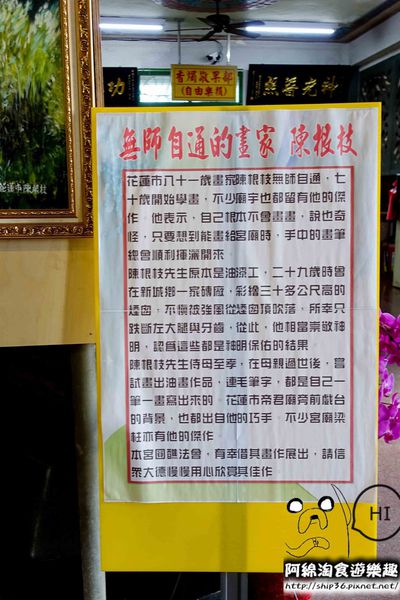 香燭敬果部
(自由樂捐)
功
神光普照
花蓮市陳根枝
無師自通的畫家 陳根枝
花蓮市八十一歲畫家陳根枝無師自通，七
十歲開始學畫，不少廟宇也都留有他的傑
作。他表示，自己根本不會畫畫，說也奇
怪，只要想到能畫給宮廟時，手中的畫筆
總會順利揮灑開來
陳根枝先生原本是油漆工，二十九歲時曾
在新城鄉一家磚廠，彩繪三十多公尺高的
煙囪，不慎被強風從煙囪頂吹落，所幸只
跌斷左大腿與牙齒，從此，他相當崇敬神
明，認為這些都是神明保佑的結果
陳根枝先生侍母至孝，在母親過世後，嘗
試畫出油畫作品，連毛筆字，都是自己一
筆一畫寫出來的。花蓮市帝君廟旁前戲台
的背景，也都出自他的巧手，不少宮廟梁
柱亦有他的傑作
本宮圓醮法會，有幸借其畫作展出，請信
眾大德慢慢用心欣賞其佳作
HI
阿綿淘食遊樂趣
http://ship36.pixnet.net/